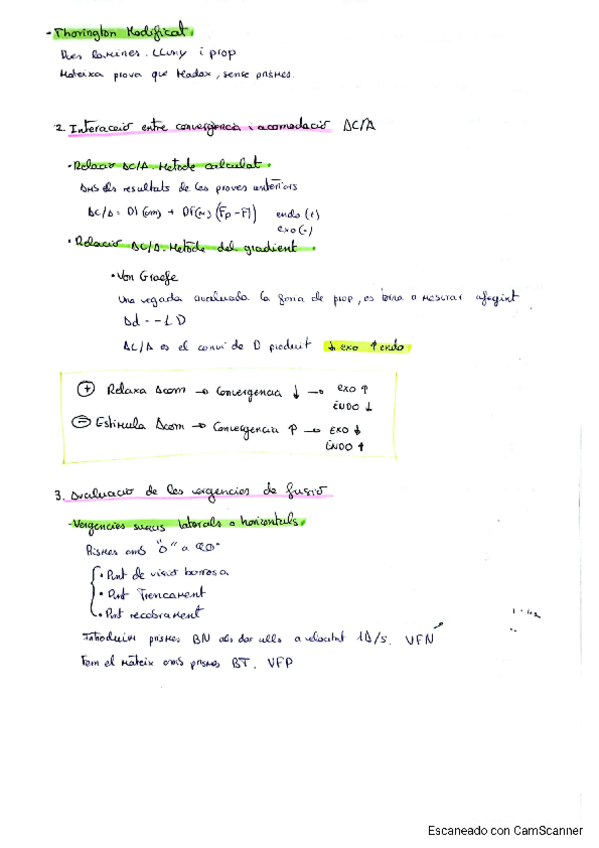 - Thorington Modificat.
Dues Lamines. Lluny i prop
Mateixa prova que Madox, sense prismes.
2. Interacció entre convergència i acomodació AC/A
• Relació AC/A. Metode calculat.
Amb els resultats de les proves anteriors
AC/A = DI (cm) + DF(m) (Fp - Fl) endo (+)
exo (-)
• Relació AC/A. Metode del gradient.
• Von Graefe
Una vegada avaluada la foria de prop, es torna a mesurar afegint
Ad = - 1 D
AC/A es el canvi de D produit ↓ exo ↑ endo
+ Relaxa Acom → Convergencia ↓ → exo ↑
ENDO ↓
- Estimula Acom → Convergencia ↑ → EXO ↓
ENDO ↑
3. Avaluació de les vergencies de fusió
- Vergencies suaus laterals o horitzontals.
Prismes amb "0" a
• Punt de visió borrosa
• Punt Trencament
• Punt recobrament
Introduim prismes BN als dos ulls a velocitat 1Δ/s. VFN
Fem el mateix amb prismes BT. VFP
Escaneado con CamScanner